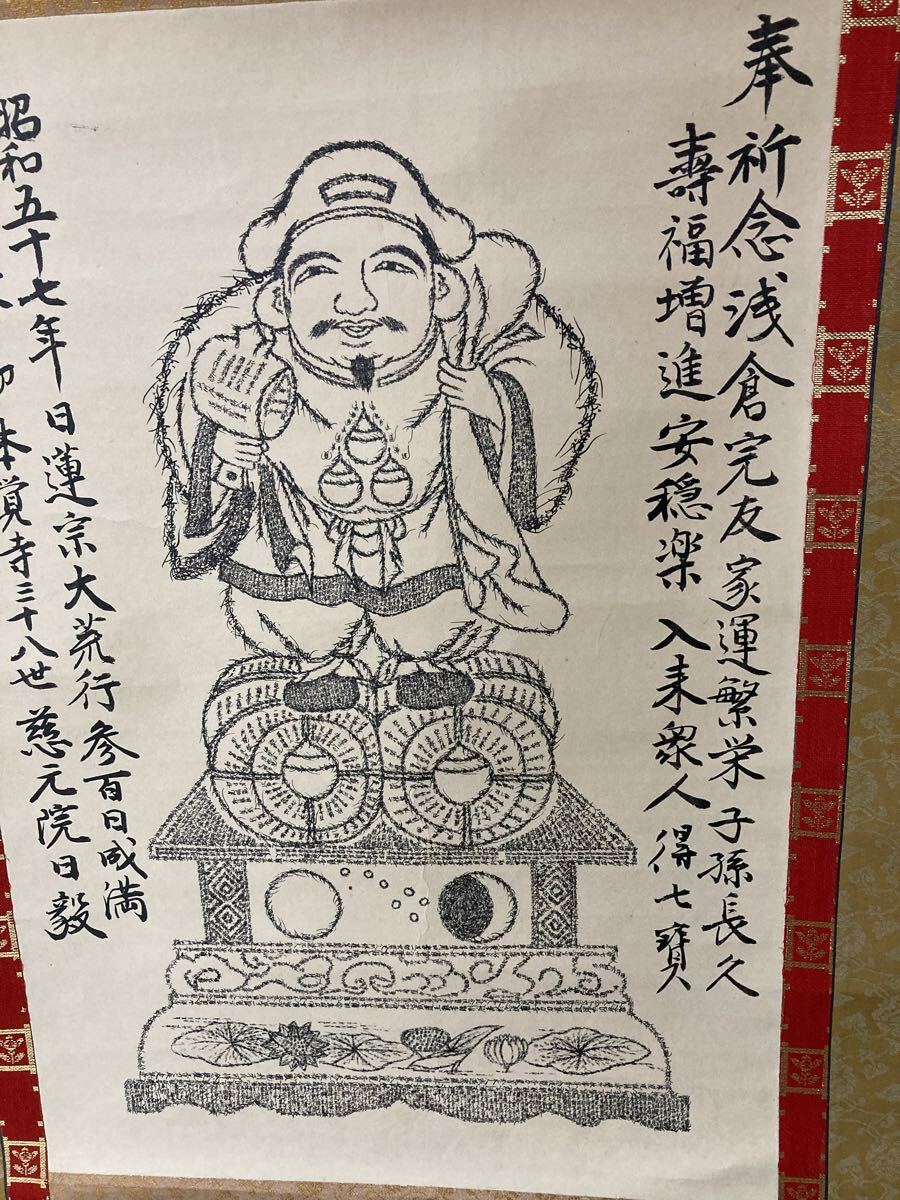 奉祈念浅倉完友家運繁栄子孫長久
壽福増進安穏楽入来衆人得七寶
日蓮宗大荒行参百日成満
昭和五十七年
本覚寺三十八世慈元院日毅